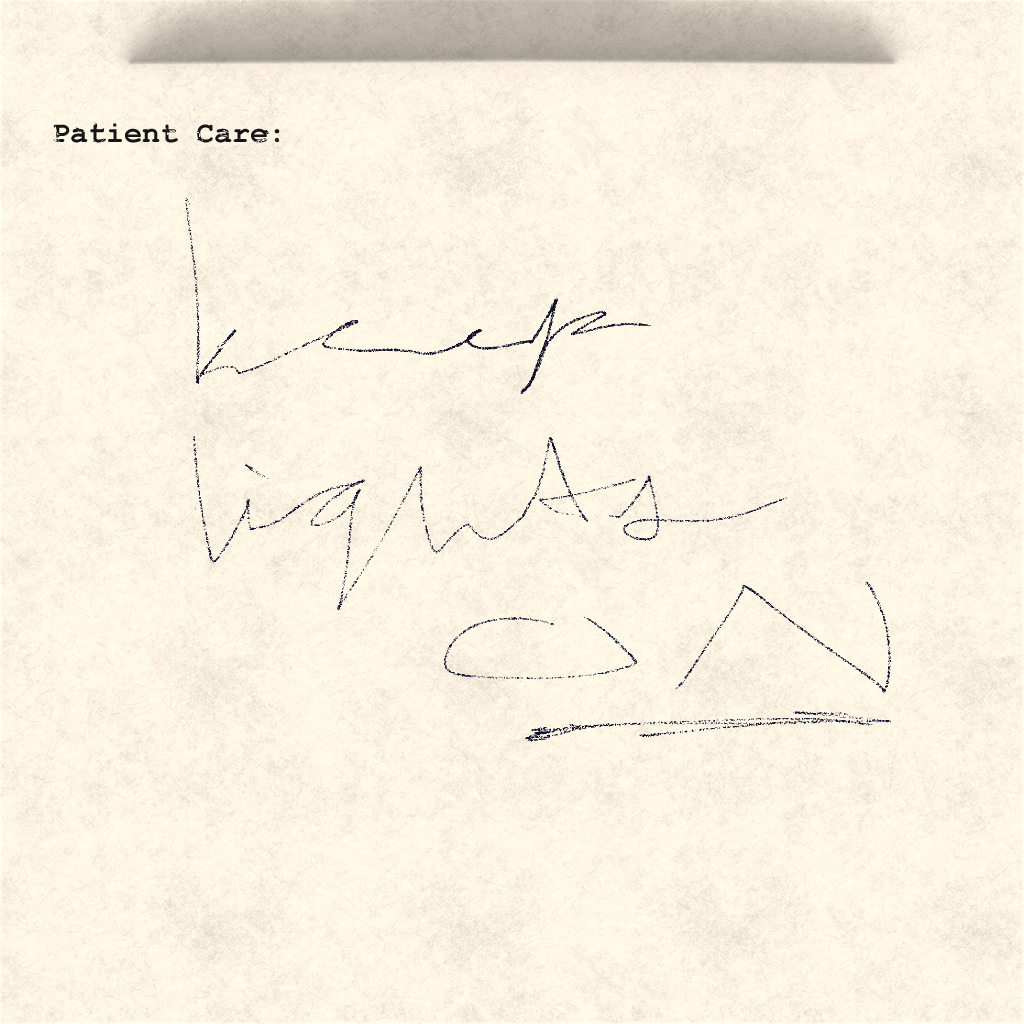 Patient Care:
keep
lights
ON